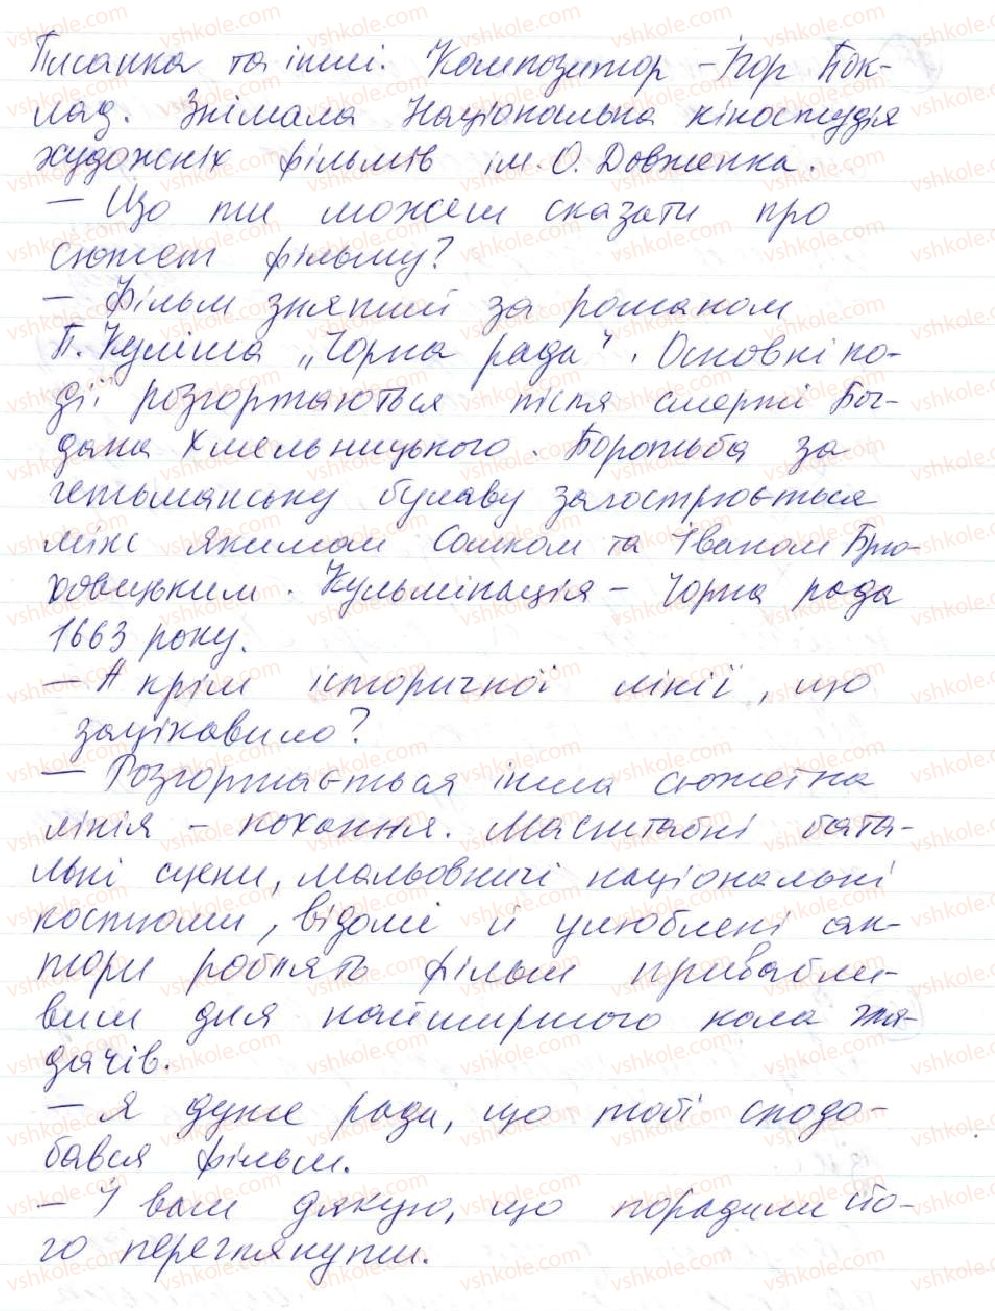 Писанка та інші. Композитор – Ігор Пок-
лад. Знімала Національна кіностудія
художніх фільмів ім. О. Довженка.
– Що ти можеш сказати про
сюжет фільму?
– Фільм знятий за романом
П. Куліша „Чорна рада". Основні по-
дії розгортаються після смерті Бог-
дана Хмельницького. Боротьба за
гетьманську булаву загострюється
між Якимом Сомком та Іваном Брю-
ховицьким. Кульмінація – Чорна рада
1663 року.
– А крім історичної лінії, що
зацікавило?
– Розгортається інша сюжетна
лінія – кохання. Масштабні бата-
льні сцени, мальовничі національні
костюми, відомі й улюблені ак-
тори роблять фільм приваблі-
вим для найширшого кола гля-
дачів.
– Я дуже рада, що тобі сподо-
бався фільм.
– І вам дякую, що порадили йо-
го переглянути.